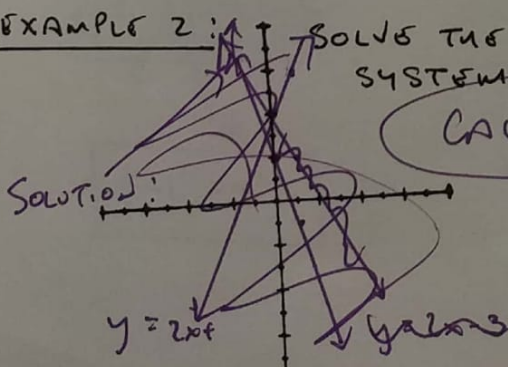 EXAMPLE 2:
SOLVE THE
SYSTEM
SOLUTION:
y = 2x+
y=2x-3